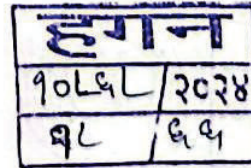 हगन
१०८६८/२०२४
१८/६६